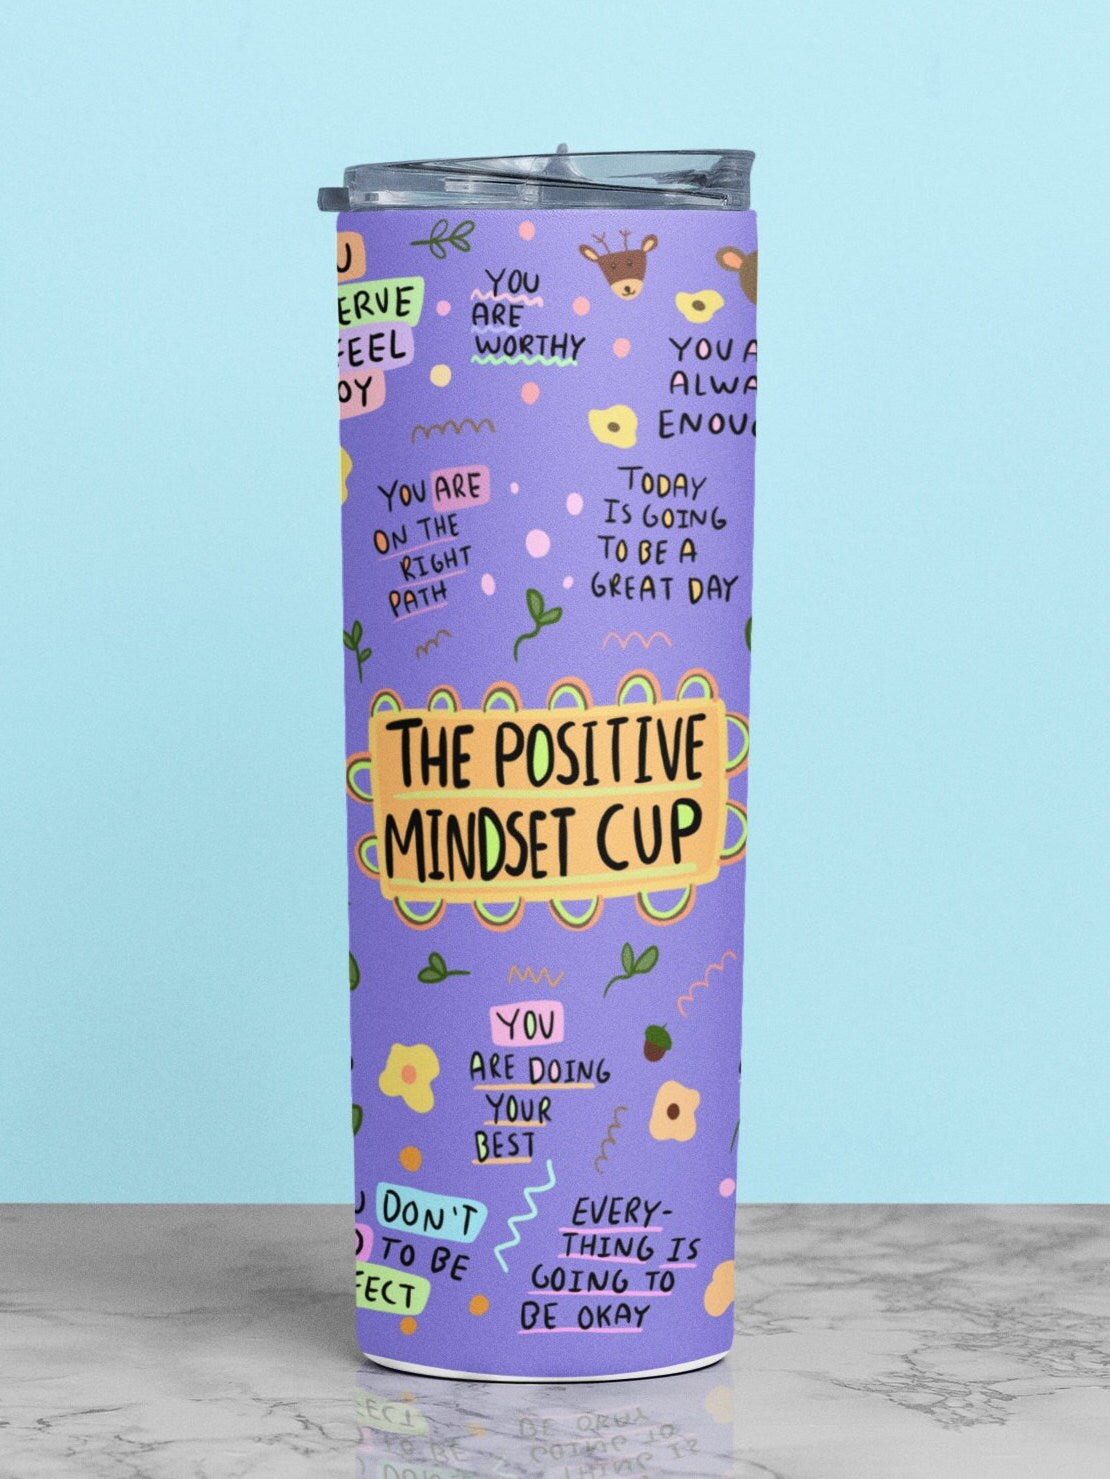 YOU
ARE
WORTHY
FEEL
YOU ARE
ON THE
RIGHT
PATH
TODAY
IS GOING
TO BE A
GREAT DAY
THE POSITIVE
MINDSET CUP
YOU
ARE DOING
YOUR
BEST
DON'T
TO BE
EVERY-
THING IS
GOING TO
BE OKAY